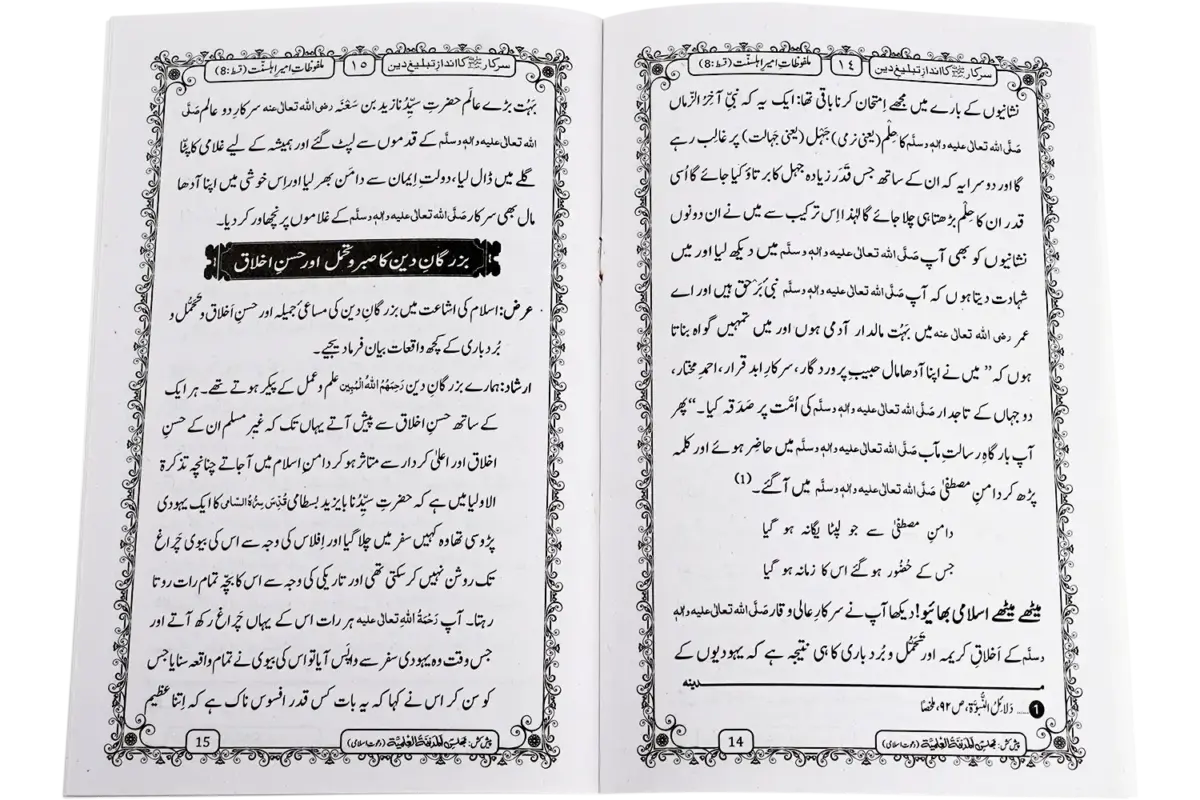 سرکار ﷺ کا اندازِ تبلیغِ دین
١٤
ملفوظاتِ امیرِ اہلسنّت (قسط:8)
نشانیوں کے بارے میں مجھے اِمتحان کرنا باقی تھا: ایک یہ کہ نبیِّ آخِرُ الزّماں
صَلَّی اللہ تعالٰی علیہ واٰلہٖ وسلَّم کا حِلْم (یعنی نرمی) جَہْل (یعنی جَہالت) پر غالب رہے
گا اور دوسرا یہ کہ ان کے ساتھ جس قَدَر زیادہ جہل کا برتاؤ کیا جائے گا اُسی
قدر ان کا حِلْم بڑھتا ہی چلا جائے گا لہٰذا اِس ترکیب سے میں نے ان دونوں
نشانیوں کو بھی آپ صَلَّی اللہ تعالٰی علیہ واٰلہٖ وسلَّم میں دیکھ لیا اور میں
شہادت دیتا ہوں کہ آپ صَلَّی اللہ تعالٰی علیہ واٰلہٖ وسلَّم نبیِّ بَرحق ہیں اور اے
عمر رضی اللہ تعالٰی عنہ میں بَہُت مالدار آدمی ہوں اور میں تمہیں گواہ بناتا
ہوں کہ” میں نے اپنا آدھا مال حبیبِ پروردگار، سرکارِ ابد قرار، احمدِ مختار،
دو جہاں کے تاجدار صَلَّی اللہ تعالٰی علیہ واٰلہٖ وسلَّم کی اُمَّت پر صَدَقہ کیا۔“ پھر
آپ بارگاہِ رسالت مآب صَلَّی اللہ تعالٰی علیہ واٰلہٖ وسلَّم میں حاضِر ہوئے اور کلمہ
پڑھ کر دامنِ مصطفیٰ صَلَّی اللہ تعالٰی علیہ واٰلہٖ وسلَّم میں آگئے۔(1)
دامنِ مصطفیٰ سے جو لپٹا یگانہ ہو گیا
جس کے حُضُور ہو گئے اس کا زمانہ ہو گیا
میٹھے میٹھے اسلامی بھائیو! دیکھا آپ نے سرکارِ عالی وقار صَلَّی اللہ تعالٰی علیہ واٰلہٖ
وسلَّم کے اَخلاقِ کریمہ اور تَحَمُّل و بُردباری کا ہی نتیجہ ہے کہ یہودیوں کے
مدینہ
1 ..... دَلَائِلُ النُّبُوَّة، ص ٩٢، ملخصًا
پیش کش: مجلس المدینۃ العلمیۃ (دعوتِ اسلامی)
14
سرکار ﷺ کا اندازِ تبلیغِ دین
١٥
ملفوظاتِ امیرِ اہلسنّت (قسط:8)
بَہُت بڑے عالم حضرتِ سیِّدُنا زید بن سَعْنَہ رضی اللہ تعالٰی عنہ سرکارِ دو عالم صَلَّی
اللہ تعالٰی علیہ واٰلہٖ وسلَّم کے قدموں سے لپٹ گئے اور ہمیشہ کے لیے غلامی کا پٹّا
گلے میں ڈال لیا، دولتِ اِیمان سے دامَن بھر لیا اور اِس خوشی میں اپنا آدھا
مال بھی سرکار صَلَّی اللہ تعالٰی علیہ واٰلہٖ وسلَّم کے غلاموں پر نچھاور کر دیا۔
بزرگانِ دین کا صبر و تحمل اور حسنِ اخلاق
عرض: اسلام کی اشاعت میں بزرگانِ دین کی مساعیٔ جمیلہ اور حسنِ اَخلاق و تَحَمُّل و
بُردباری کے کچھ واقعات بیان فرما دیجیے۔
ارشاد: ہمارے بزرگانِ دین رَحِمَہُمُ اللہُ الْمُبِین علم و عمل کے پیکر ہوتے تھے۔ ہر ایک
کے ساتھ حسنِ اخلاق سے پیش آتے یہاں تک کہ غیر مسلم ان کے حسنِ
اخلاق اور اعلیٰ کردار سے متاثر ہو کر دامنِ اسلام میں آجاتے چنانچہ تذکرۃ
الاولیا میں ہے کہ حضرتِ سیِّدُنا بایزید بسطامی قُدِّسَ سِرُّہُ السَّامی کا ایک یہودی
پڑوسی تھا وہ کہیں سفر میں چلا گیا اور اِفلاس کی وجہ سے اس کی بیوی چَراغ
تک روشن نہیں کر سکتی تھی اور تاریکی کی وجہ سے اس کا بچّہ تمام رات روتا
رہتا۔ آپ رَحْمَۃُ اللہِ تعالٰی علیہ ہر رات اس کے یہاں چَراغ رکھ آتے اور
جس وقت وہ یہودی سفر سے واپس آیا تو اس کی بیوی نے تمام واقعہ سنایا جس
کو سن کر اس نے کہا کہ یہ بات کس قدر افسوس ناک ہے کہ اِتنا عظیم
پیش کش: مجلس المدینۃ العلمیۃ (دعوتِ اسلامی)
15